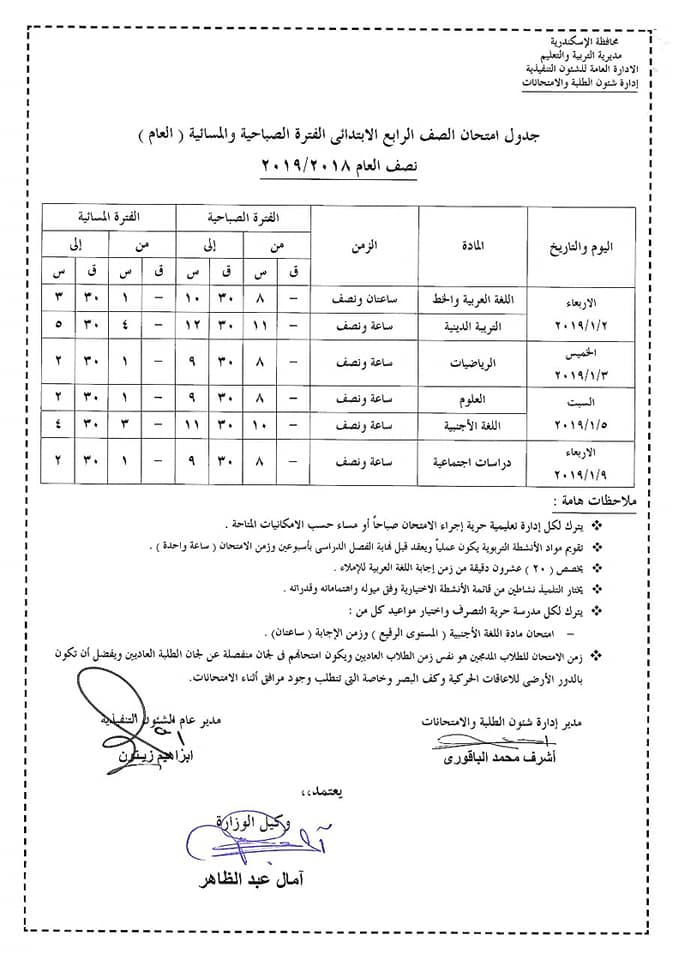 محافظة الإسكندرية
مديرية التربية والتعليم
الادارة العامة للشئون التنفيذية
إدارة شئون الطلبة والامتحانات
جدول امتحان الصف الرابع الابتدائى الفترة الصباحية والمسائية ( العام )
نصف العام ٢٠١٩/٢٠١٨
اليوم والتاريخ المادة الزمن الفترة الصباحية الفترة المسائية
من إلى من إلى
ق س ق س ق س ق س
الاربعاء ٢٠١٩/١/٢ اللغة العربية والخط ساعتان ونصف – ٨ ٣٠ ١٠ – ١ ٣٠ ٣
التربية الدينية ساعة ونصف – ١١ ٣٠ ١٢ – ٤ ٣٠ ٥
الخميس ٢٠١٩/١/٣ الرياضيات ساعة ونصف – ٨ ٣٠ ٩ – ١ ٣٠ ٢
السبت ٢٠١٩/١/٥ العلوم ساعة ونصف – ٨ ٣٠ ٩ – ١ ٣٠ ٢
اللغة الأجنبية ساعة ونصف – ١٠ ٣٠ ١١ – ٣ ٣٠ ٤
الاربعاء ٢٠١٩/١/٩ دراسات اجتماعية ساعة ونصف – ٨ ٣٠ ٩ – ١ ٣٠ ٢
ملاحظات هامة :
❖ يترك لكل إدارة تعليمية حرية إجراء الامتحان صباحاً أو مساء حسب الامكانيات المتاحة .
❖ تقويم مواد الأنشطة التربوية يكون عملياً ويعقد قبل نهاية الفصل الدراسى بأسبوعين وزمن الامتحان ( ساعة واحدة ) .
❖ يخصص ( ٢٠ ) عشرون دقيقة من زمن إجابة اللغة العربية للإملاء .
❖ يختار التلميذ نشاطين من قائمة الأنشطة الاختيارية وفق ميوله واهتماماته وقدراته .
❖ يترك لكل مدرسة حرية التصرف واختيار مواعيد كل من :
– امتحان مادة اللغة الأجنبية ( المستوى الرفيع ) وزمن الإجابة ( ساعتان) .
❖ زمن الامتحان للطلاب المدمجين هو نفس زمن الطلاب العاديين ويكون امتحانهم فى لجان منفصلة عن لجان الطلبة العاديين ويفضل أن تكون
بالدور الأرضى للاعاقات الحركية وكف البصر وخاصة التى تتطلب وجود مرافق أثناء الامتحانات.
مدير إدارة شئون الطلبة والامتحانات
أشرف محمد الباقورى
مدير عام الشئون التنفيذية
ابراهيم زيتون
يعتمد،،
وكيل الوزارة
آمال عبد الظاهر